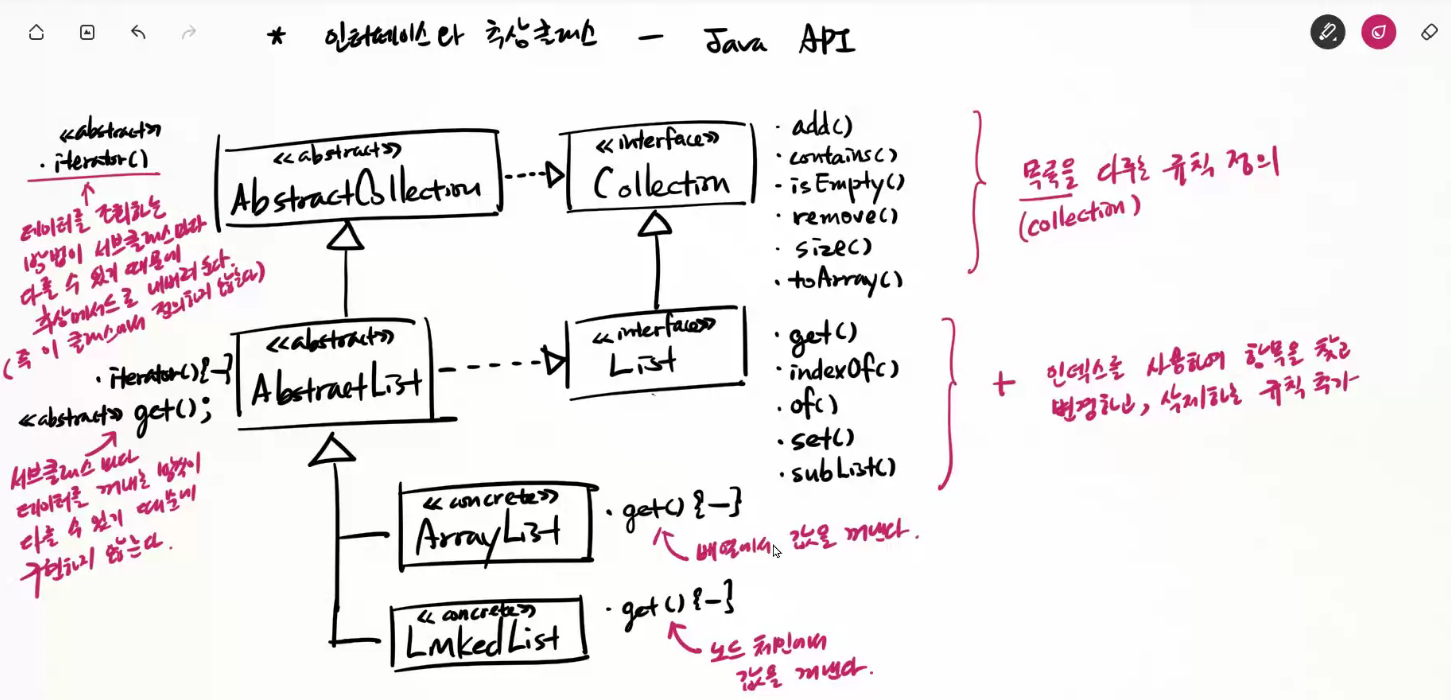 * 인터페이스와 추상클래스 - Java API
<<abstract>>
· iterator()
데이터를 조회하는
방법이 서브클래스마다
다를 수 있기 때문에
추상메서드로 내버려 둔다.
(즉 이 클래스에서 정의하지 않는다)
<<abstract>>
AbstractCollection
<<interface>>
Collection
· add()
· contains()
· isEmpty()
· remove()
· size()
· toArray()
목록을 다루는 규칙 정의
(collection)
· iterator(){-}
<<abstract>> get();
서브클래스 마다
데이터를 꺼내는 방식이
다를 수 있기 때문에
구현하지 않는다.
<<abstract>>
AbstractList
<<interface>>
List
· get()
· indexOf()
· of()
· set()
· subList()
+ 인덱스를 사용하여 항목을 찾고
변경하고, 삭제하는 규칙 추가
<<concrete>>
ArrayList
· get() {-}
배열에서 값을 꺼낸다.
<<concrete>>
LinkedList
· get() {-}
노드 체인에서
값을 꺼낸다.